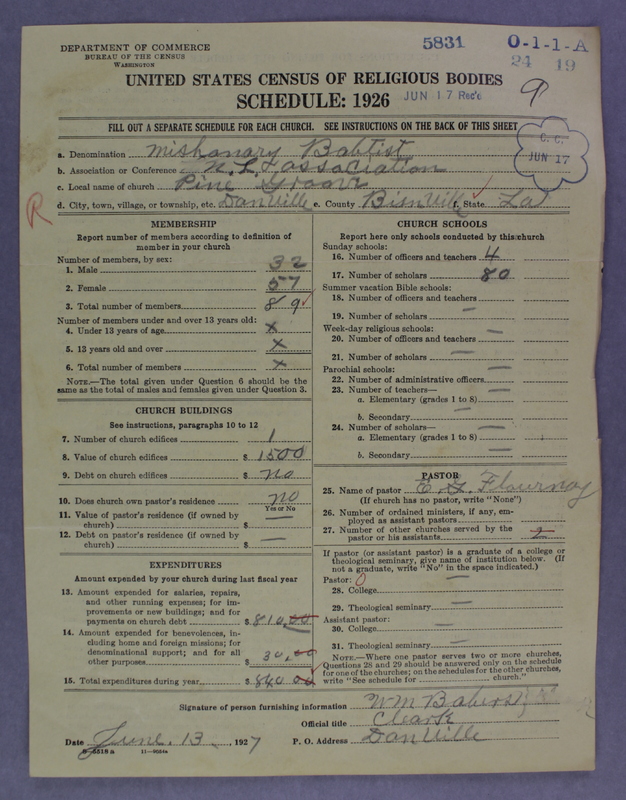 DEPARTMENT OF COMMERCE
BUREAU OF THE CENSUS
WASHINGTON
5831
O-1-1-A
24 19
UNITED STATES CENSUS OF RELIGIOUS BODIES
SCHEDULE: 1926
JUN 17 Rec'd
9
FILL OUT A SEPARATE SCHEDULE FOR EACH CHURCH. SEE INSTRUCTIONS ON THE BACK OF THIS SHEET
C. C.
JUN 17
a. Denomination Mishonary Babtist
b. Association or Conference N. L. association
c. Local name of church Pine Groove
d. City, town, village, or township, etc. Danville e. County Bienville f. State La
R
MEMBERSHIP
Report number of members according to definition of member in your church
Number of members, by sex:
1. Male 32
2. Female 57
3. Total number of members 89
Number of members under and over 13 years old:
4. Under 13 years of age x
5. 13 years old and over x
6. Total number of members x
NOTE.—The total given under Question 6 should be the same as the total of males and females given under Question 3.
CHURCH BUILDINGS
See instructions, paragraphs 10 to 12
7. Number of church edifices 1
8. Value of church edifices $ 1500
9. Debt on church edifices $ no
10. Does church own pastor's residence no
Yes or No
11. Value of pastor's residence (if owned by church) $ —
12. Debt on pastor's residence (if owned by church) $ —
EXPENDITURES
Amount expended by your church during last fiscal year
13. Amount expended for salaries, repairs, and other running expenses; for improvements or new buildings; and for payments on church debt $ 810.00
14. Amount expended for benevolences, including home and foreign missions; for denominational support; and for all other purposes $ 30.00
15. Total expenditures during year $ 840 00
CHURCH SCHOOLS
Report here only schools conducted by this church
Sunday schools:
16. Number of officers and teachers 4
17. Number of scholars 80
Summer vacation Bible schools:
18. Number of officers and teachers —
19. Number of scholars —
Week-day religious schools:
20. Number of officers and teachers —
21. Number of scholars —
Parochial schools:
22. Number of administrative officers —
23. Number of teachers—
a. Elementary (grades 1 to 8) —
b. Secondary —
24. Number of scholars—
a. Elementary (grades 1 to 8) —
b. Secondary —
PASTOR
25. Name of pastor E. G. Flournoy
(If church has no pastor, write "None")
26. Number of ordained ministers, if any, employed as assistant pastors
27. Number of other churches served by the pastor or his assistants 2
If pastor (or assistant pastor) is a graduate of a college or theological seminary, give name of institution below. (If not a graduate, write "No" in the space indicated.)
Pastor: 0
28. College —
29. Theological seminary —
Assistant pastor:
30. College —
31. Theological seminary —
NOTE.—Where one pastor serves two or more churches, Questions 28 and 29 should be answered only on the schedule for one of the churches; on the schedules for the other churches, write "See schedule for church."
Signature of person furnishing information Wm
Official title Cleark
Date June. 13, 1927 P. O. Address Danville
8—5518 a 11—9054a